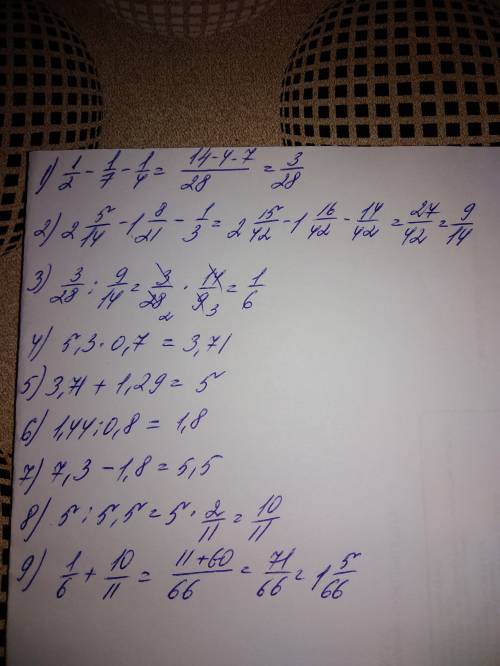 1) 1/2 - 1/7 - 1/4 = (14-4-7)/28 = 3/28
2) 2 5/14 - 1 8/21 - 1/3 = 2 15/42 - 1 16/42 - 14/42 = 27/42 = 9/14
3) 3/28 : 9/14 = 3/28 2 · 14/9 3 = 1/6
4) 5,3 · 0,7 = 3,71
5) 3,71 + 1,29 = 5
6) 1,44 : 0,8 = 1,8
7) 7,3 - 1,8 = 5,5
8) 5 : 5,5 = 5 · 2/11 = 10/11
9) 1/6 + 10/11 = (11+60)/66 = 71/66 = 1 5/66